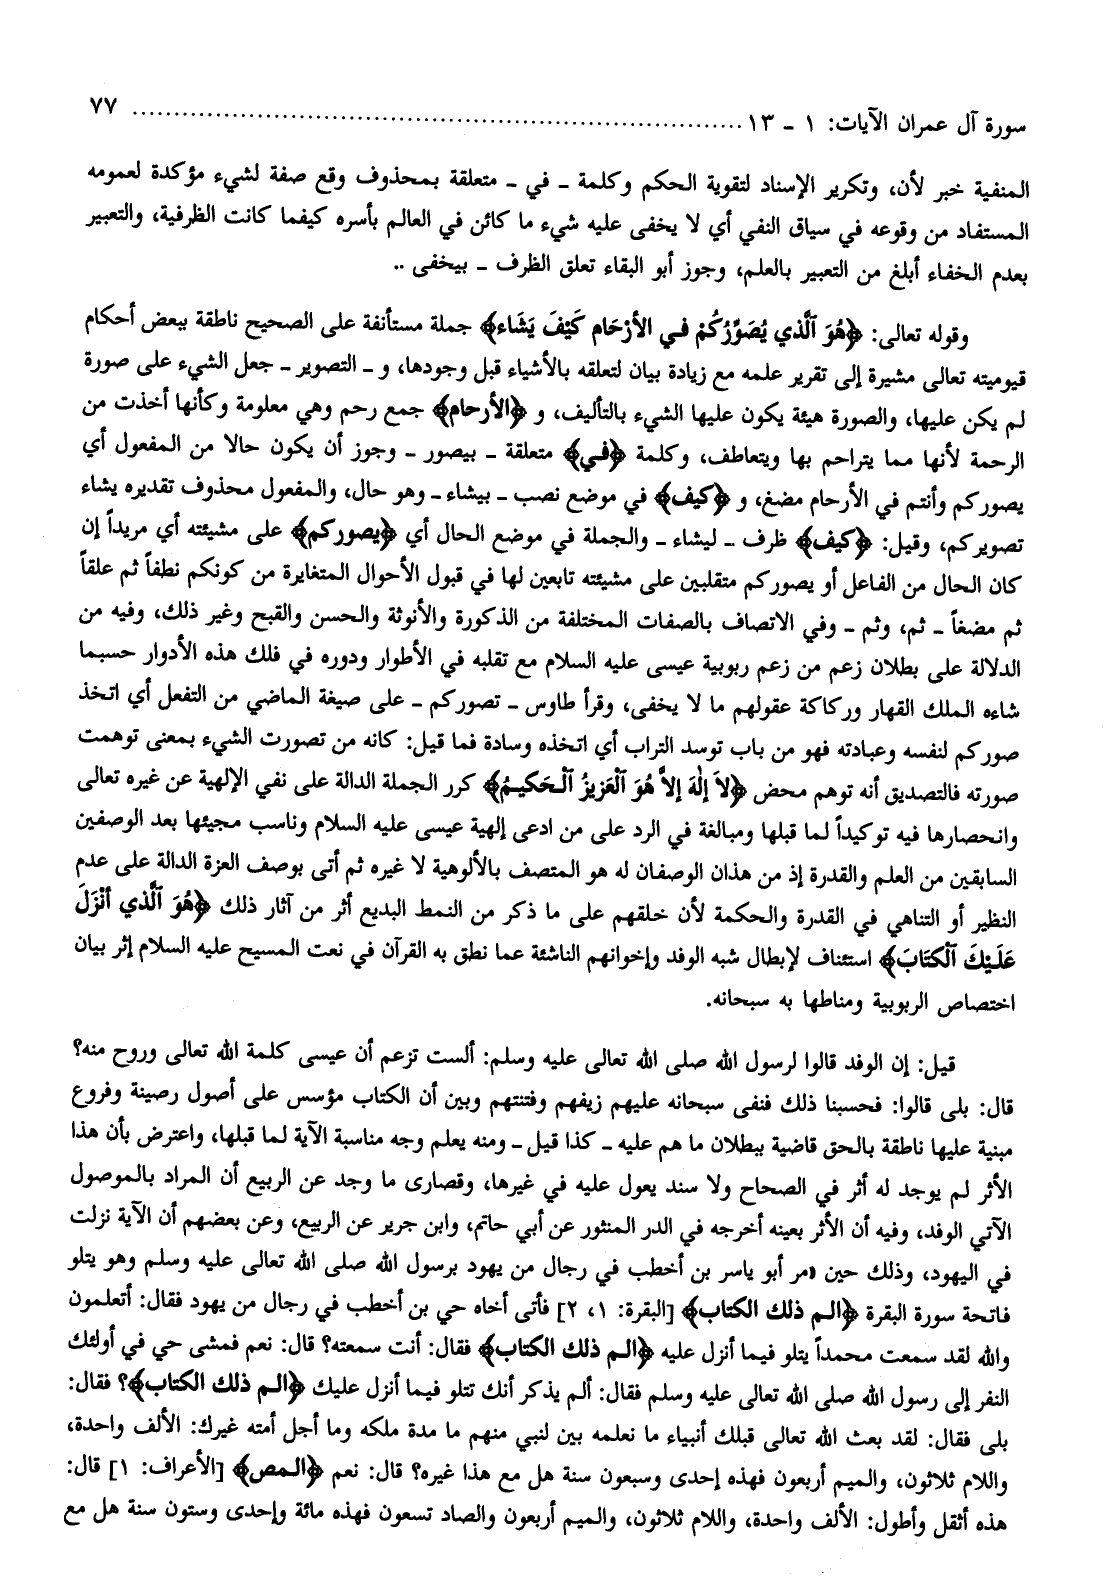 سورة آل عمران الآيات: ١ ـ ١٣ ........................................................................ ٧٧
المنفية خبر لأن، وتكرير الإسناد لتقوية الحكم وكلمة ـ في ـ متعلقة بمحذوف وقع صفة لشيء مؤكدة لعمومه
المستفاد من وقوعه في سياق النفي أي لا يخفى عليه شيء ما كائن في العالم بأسره كيفما كانت الظرفية، والتعبير
بعدم الخفاء أبلغ من التعبير بالعلم، وجوز أبو البقاء تعلق الظرف ـ بيخفى ..
وقوله تعالى: ﴿هُوَ ٱلَّذي يُصَوِّرُكُمْ في الأرْحَام كَيْفَ يَشَاء﴾ جملة مستأنفة على الصحيح ناطقة ببعض أحكام
قيوميته تعالى مشيرة إلى تقرير علمه مع زيادة بيان لتعلقه بالأشياء قبل وجودها، و ـ التصوير ـ جعل الشيء على صورة
لم يكن عليها، والصورة هيئة يكون عليها الشيء بالتأليف، و ﴿الأرحام﴾ جمع رحم وهي معلومة وكأنها أخذت من
الرحمة لأنها مما يتراحم بها ويتعاطف، وكلمة ﴿في﴾ متعلقة ـ بيصور ـ وجوز أن يكون حالا من المفعول أي
يصوركم وأنتم في الأرحام مضغ، و ﴿كيف﴾ في موضع نصب ـ بيشاء ـ وهو حال، والمفعول محذوف تقديره يشاء
تصويركم، وقيل: ﴿كيف﴾ ظرف ـ ليشاء ـ والجملة في موضع الحال أي ﴿يصوركم﴾ على مشيئته أي مريداً إن
كان الحال من الفاعل أو يصوركم متقلبين على مشيئته تابعين لها في قبول الأحوال المتغايرة من كونكم نطفاً ثم علقاً
ثم مضغاً ـ ثم، وثم ـ وفي الاتصاف بالصفات المختلفة من الذكورة والأنوثة والحسن والقبح وغير ذلك، وفيه من
الدلالة على بطلان زعم من زعم ربوبية عيسى عليه السلام مع تقلبه في الأطوار ودوره في فلك هذه الأدوار حسبما
شاءه الملك القهار وركاكة عقولهم ما لا يخفى، وقرأ طاوس ـ تصوركم ـ على صيغة الماضي من التفعل أي اتخذ
صوركم لنفسه وعبادته فهو من باب توسد التراب أي اتخذه وسادة فما قيل: كانه من تصورت الشيء بمعنى توهمت
صورته فالتصديق أنه توهم محض ﴿لاَ إلٰهَ إلاَّ هُوَ ٱلعَزيزُ ٱلْحَكيمُ﴾ كرر الجملة الدالة على نفي الإلهية عن غيره تعالى
وانحصارها فيه توكيداً لما قبلها ومبالغة في الرد على من ادعى إلهية عيسى عليه السلام وناسب مجيئها بعد الوصفين
السابقين من العلم والقدرة إذ من هذان الوصفان له هو المتصف بالألوهية لا غيره ثم أتى بوصف العزة الدالة على عدم
النظير أو التناهي في القدرة والحكمة لأن خلقهم على ما ذكر من النمط البديع أثر من آثار ذلك ﴿هُوَ ٱلَّذي أنْزَلَ
عَلَيْكَ ٱلْكتَابَ﴾ استئناف لإبطال شبه الوفد وإخوانهم الناشئة عما نطق به القرآن في نعت المسيح عليه السلام إثر بيان
اختصاص الربوبية ومناطها به سبحانه.
قيل: إن الوفد قالوا لرسول الله صلى الله تعالى عليه وسلم: ألست تزعم أن عيسى كلمة الله تعالى وروح منه؟
قال: بلى قالوا: فحسبنا ذلك فنفى سبحانه عليهم زيفهم وفتنتهم وبين أن الكتاب مؤسس على أصول رصينة وفروع
مبنية عليها ناطقة بالحق قاضية ببطلان ما هم عليه ـ كذا قيل ـ ومنه يعلم وجه مناسبة الآية لما قبلها، واعترض بأن هذا
الأثر لم يوجد له أثر في الصحاح ولا سند يعول عليه في غيرها، وقصارى ما وجد عن الربيع أن المراد بالموصول
الآتي الوفد، وفيه أن الأثر بعينه أخرجه في الدر المنثور عن أبي حاتم، وابن جرير عن الربيع، وعن بعضهم أن الآية نزلت
في اليهود، وذلك حين «مر أبو ياسر بن أخطب في رجال من يهود برسول الله صلى الله تعالى عليه وسلم وهو يتلو
فاتحة سورة البقرة ﴿الم ذلك الكتاب﴾ [البقرة: ١، ٢] فأتى أخاه حي بن أخطب في رجال من يهود فقال: أتعلمون
والله لقد سمعت محمداً يتلو فيما أنزل عليه ﴿الم ذلك الكتاب﴾ فقال: أنت سمعته؟ قال: نعم فمشى حي في أولئك
النفر إلى رسول الله صلى الله تعالى عليه وسلم فقال: ألم يذكر أنك تتلو فيما أنزل عليك ﴿الم ذلك الكتاب﴾؟ فقال:
بلى فقال: لقد بعث الله تعالى قبلك أنبياء ما نعلمه بين لنبي منهم ما مدة ملكه وما أجل أمته غيرك: الألف واحدة،
واللام ثلاثون، والميم أربعون فهذه إحدى وسبعون سنة هل مع هذا غيره؟ قال: نعم ﴿المص﴾ [الأعراف: ١] قال:
هذه أثقل وأطول: الألف واحدة، واللام ثلاثون، والميم أربعون والصاد تسعون فهذه مائة وإحدى وستون سنة هل مع